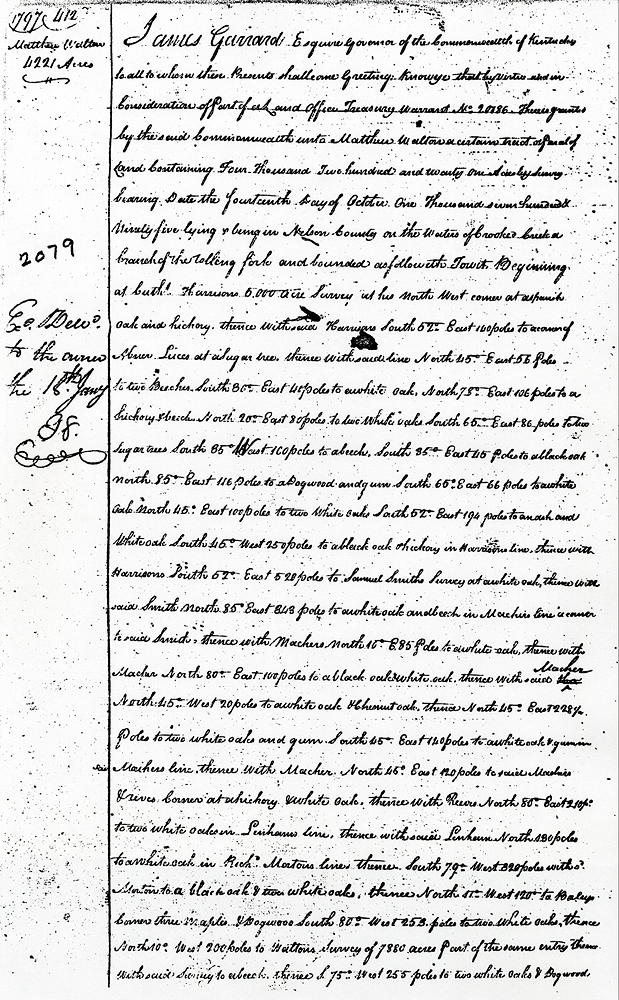 1797 412
Matthew Walton
4221 Acres
2079
Ex. & Del.d
to the owner
the 18th Jany
98.
James Garrard Esquire Governor of the Commonwealth of Kentucky
to all to whom these Presents shall come Greeting. Know ye that by virtue and in
Consideration of Part of a Land Office Treasury Warrant No. 20786. There is granted
by the said Commonwealth unto Matthew Walton a certain tract or Parcel of
Land Containing Four Thousand Two hundred and twenty one Acres by Survey
bearing Date the fourteenth Day of October One Thousand seven hundred &
Ninety five lying & being in Nelson County on the Waters of Crooked Creek a
branch of the rolling fork and bounded as followeth Towit. Beginning
at Harrisons 5,000 acre Survey at his North West corner at a spanish
oak and hickory, thence With said Harrisons South 52° East 140 poles to a corner of
Abner at a sugar tree, thence With said line North 45° East 56 poles
to two Beeches. South 80° East 40 poles to a white oak, North 75° East 106 poles to a
hickory & beech. North 20° East 80 poles to two White oaks South 65° East 86 poles to two
sugar trees South 35° West 100 poles to a beech, South 35° East 45 Poles to a black oak
north 85° East 116 poles to a Dogwood and gum South 65° East 66 poles to a white
oak North 45° East 100 poles to two White oaks South 52° East 194 poles to an ash and
White oak South 45° West 250 poles to a black oak & hickory in Harrisons line, thence with
Harrisons South 52° East 520 poles to Samuel Smiths Survey at a white oak, thence with
said Smith North 85° East 343 poles to a white oak and beech in Machirs line a corner
to said Smith, thence with Machers North 10° E 85 Poles to a white oak, thence with
Macher North 80° East 100 poles to a black oak & white oak, thence With said Macher
North 45° West 20 poles to a white oak & Chesnut oak, thence North 45° East 228½
Poles to two white oaks and gum South 45° East 140 poles to a white oak & gum in
said Machers line, thence With Macher North 45° East 120 poles to said Machers
& reeves Corner at a hickory & White Oak, thence with Reeves North 80° East 210 p.
to two white oaks in Linhams line, thence with said Linham North 130 poles
to a white oak in Rich.d Mortons line thence South 79° West 320 poles with s.d
Morton to a black oak & two white oaks, thence North 11° West 120 to
Corner three maples & Dogwood South 80° West 253 poles to two White oaks, thence
North 10° West 200 poles to Waltons Survey of 7880 acres Part of the same entry thence
With said Survey to a beech, thence S 75° West 255 poles to two white Oaks & Dogwood